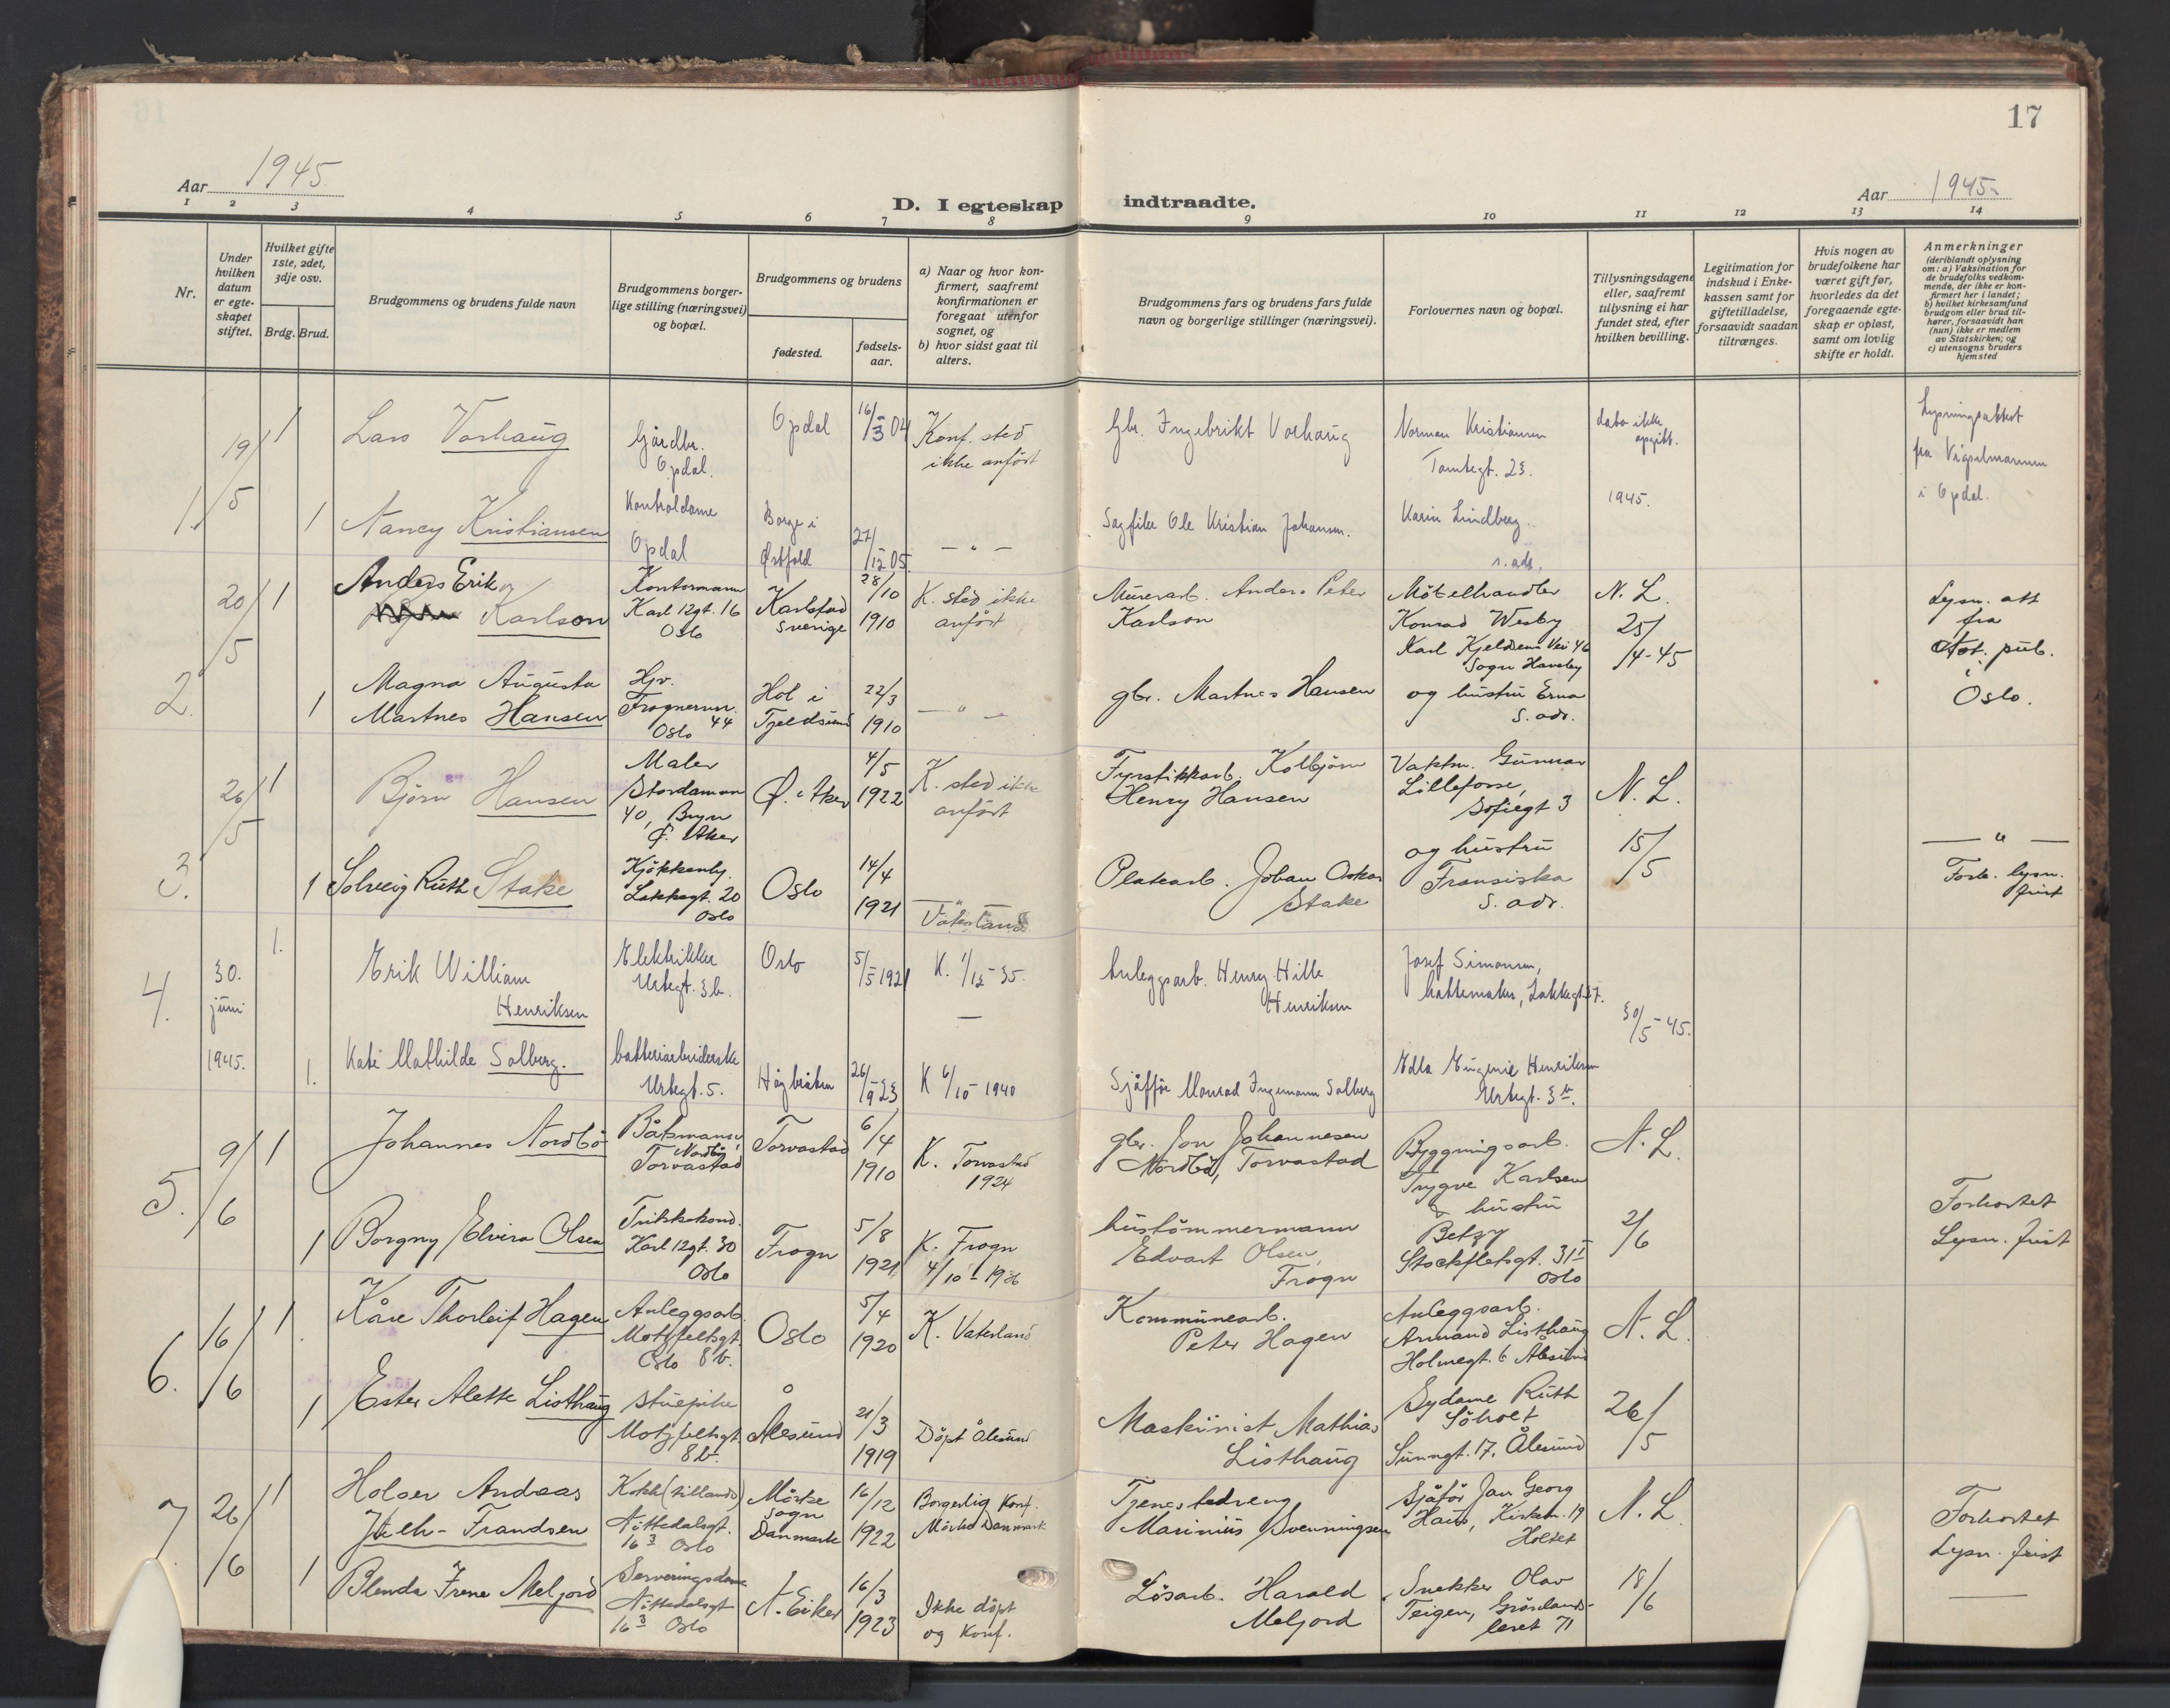 17
Aar 1945
D. I egteskap indtraadte.
Aar 1945.
1 2 3 4 5 6 7 8 9 10 11 12 13 14
Nr.
Under hvilken datum er egteskapet stiftet.
Hvilket gifte 1ste, 2det, 3dje osv.
Brdg. Brud.
Brudgommens og brudens fulde navn
Brudgommens borgerlige stilling (næringsvei) og bopæl.
Brudgommens og brudens
fødested.
fødselsaar.
a) Naar og hvor konfirmert, saafremt konfirmationen er foregaat utenfor sognet, og
b) hvor sidst gaat til alters.
Brudgommens fars og brudens fars fulde navn og borgerlige stillinger (næringsvei).
Forlovernes navn og bopæl.
Tillysningsdagene eller, saafremt tillysning ei har fundet sted, efter hvilken bevilling.
Legitimation for indskud i Enkekassen samt for giftetilladelse, forsaavidt saadan tiltrænges.
Hvis nogen av brudefolkene har været gift før, hvorledes da det foregaaende egteskap er opløst, samt om lovlig skifte er holdt.
Anmerkninger (deriblandt oplysning om: a) Vaksination for de brudefolks vedkommende, der ikke er konfirmert her i landet; b) hvilket kirkesamfund brudgom eller brud tilhører, forsaavidt han (hun) ikke er medlem av Statskirken; og c) utensogns bruders hjemsted
1. 19/5 1 Lars Vorhaug
Gårdbr. Opdal.
Opdal 16/3-04
Konf. sted ikke anført
Gbr. Ingebrikt Vorhaug
Norman Kristiansen Tomtegt. 23.
dato ikke oppgitt. 1945.
Lysningsattest fra Vigselmannen i Opdal.
1 Nancy Kristiansen
Kontroldame Opdal
Borge i Østfold 27/12-05.
— " —
Sagfiler Ole Kristian Johansen.
Karin Lindberg s. adr.
2. 20/5 1 Anders Erik Karlson
Kontormann Karl 12gt. 16 Oslo
Karlstad Sverige 28/10 1910
K. sted ikke anført
Murerarb. Anders Peter Karlson
Möbelhandler Konrad Wesby Karl Kjeldsens Vei 46 Sogn Haveby
N. L. 25/4-45
Lysn. att fra Not. pub. i Oslo.
1 Magna Augusta Martnes Hansen
Hjv. Frognervn. 44 Oslo
Hol i Tjeldsund 22/3 1910
— " —
gbr. Martnes Hansen
og hustru Erna s. adr.
3. 26/5 1 Björn Hansen
Maler Stordamvn 40, Bryn Ø. Aker
Ø. Aker 4/5 1922
K. sted ikke anført
Fyrstikkarb. Kolbjörn Henry Hansen
Vaktm. Gunnar Lillefosse, Sofiegt 3
N. L. 15/5
— " —
Fork. lysn. frist
1 Solveig Ruth Stake
Kjökkenhj. Lakkegt. 20 Oslo
Oslo 14/4 1921
— " — Vaterland
Platearb. Johan Oskar Stake
og hustru Fransiska s. adr.
4. 30. juni 1945. 1. Erik William Henriksen
Elektrikker Urtegt. 3b.
Oslo 5/5-1921
K. 1/12-35.
—
Anleggsarb. Henry Hille Henriksen
Josef Simonsen, hattemaker, Lakkegt 27.
30/5-45.
1. Kate Mathilde Solberg.
batteriarbeiderske Urtegt. 5.
Høybråten 26/9-23
K 6/10-1940
Sjåffør Monrad Ingemann Solberg
Edla Eugenie Henriksen Urtegt. 3b.
5. 9/6 1 Johannes Nordbö
Båtsmann, Nordbö, Torvastad
Torvastad 6/4 1910
K. Torvastad 1924
gbr. Jon Johannesen Nordbö, Torvastad
Bygningsarb. Trygve Karlsen & hustru Betzy Stockfletsgt. 31 I Oslo
N. L. 2/6
Forkortet Lysn. frist
1 Borgny Elvira Olsen
Trikkekond. Karl 12gt. 30 Oslo
Frogn 5/8 1921
K. Frogn 4/10-1936
hustömmermann Edvart Olsen, Frogn
6. 16/6 1 Kåre Thorleif Hagen
Anleggsarb. Motzfeltsgt. 8b. Oslo
Oslo 5/4 1920
K. Vaterland
Kommunearb. Peter Hagen
Anleggsarb. Armand Listhaug Holmegt. 6 Ålesund
N. L. 26/5
1 Ester Alette Listhaug
Stuepike Motzfeltsgt 8b.
Ålesund 21/3 1919
Döpt Ålesund
Maskinist Mathias Listhaug
Sydame Ruth Söholt Sunngt. 17, Ålesund
7. 26/6 1 Holger Andreas Juth-Frandsen
Kokk (tillands) Nittedalsgt. 16³ Oslo
Mörke sogn Danmark 16/12 1922
Borgerlig Konf. Mörke Danmark
Tjenestedreng Marinius Svenningsen
Sjåför Jan Georg Haus, Kirkevn. 19 Holtet
N. L. 18/6
Forkortet Lysn. frist
—
1 Blenda Irene Meljord
Serveringsdame Nittedalsgt 16³ Oslo
N. Eiker 16/3 1923
Ikke döpt og konf.
Lösarb. Harald Meljord
Snekker Olav Teigen, Grönlandsleret 71